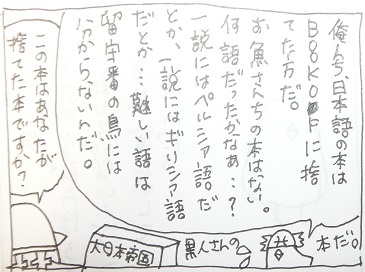 俺今、日本語の本は
BOOKOFFに捨
てた方だ。
お魚さんちの本はない。
何語だったかなあ…?
一説にはペルシア語だ
とか、一説にはギリシア語
だとか…難しい語は
留守番の鳥には
分からないんだ。
この本はあなたが
捨てた本ですか?
大日本帝国
黒人さんの
本だ。